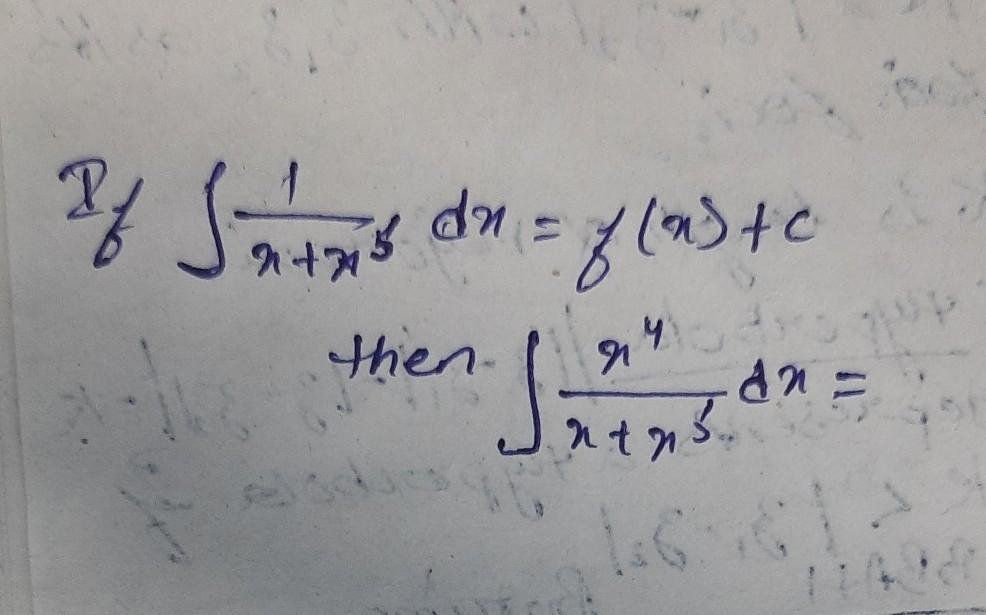 If ∫ 1/(x+x⁵) dx = f(x)+c
then ∫ x⁴/(x+x⁵) dx =